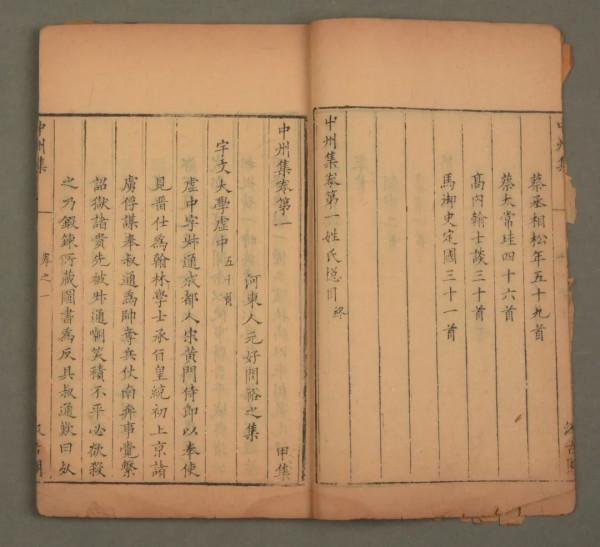 蔡丞相松年五十九首
蔡太常珪四十六首
高內翰士談三十首
馬御史定國三十一首
中州集卷第一姓氏總目 終
中州集卷第一 甲集
河東人元好問裕之集
宇文大學虛中 五十首
虛中字叔通成都人宋黃門侍郎以奉使
見留仕為翰林學士承旨皇統初上京諸
虜俘謀奉叔通為帥奪兵仗南奔事覺繫
詔獄諸貴先被叔通嘲笑積不平必欲殺
之乃鍛鍊所藏圖書為反具叔通歎曰死
中州集
卷之一
汲古閣
中州集
汲古閣